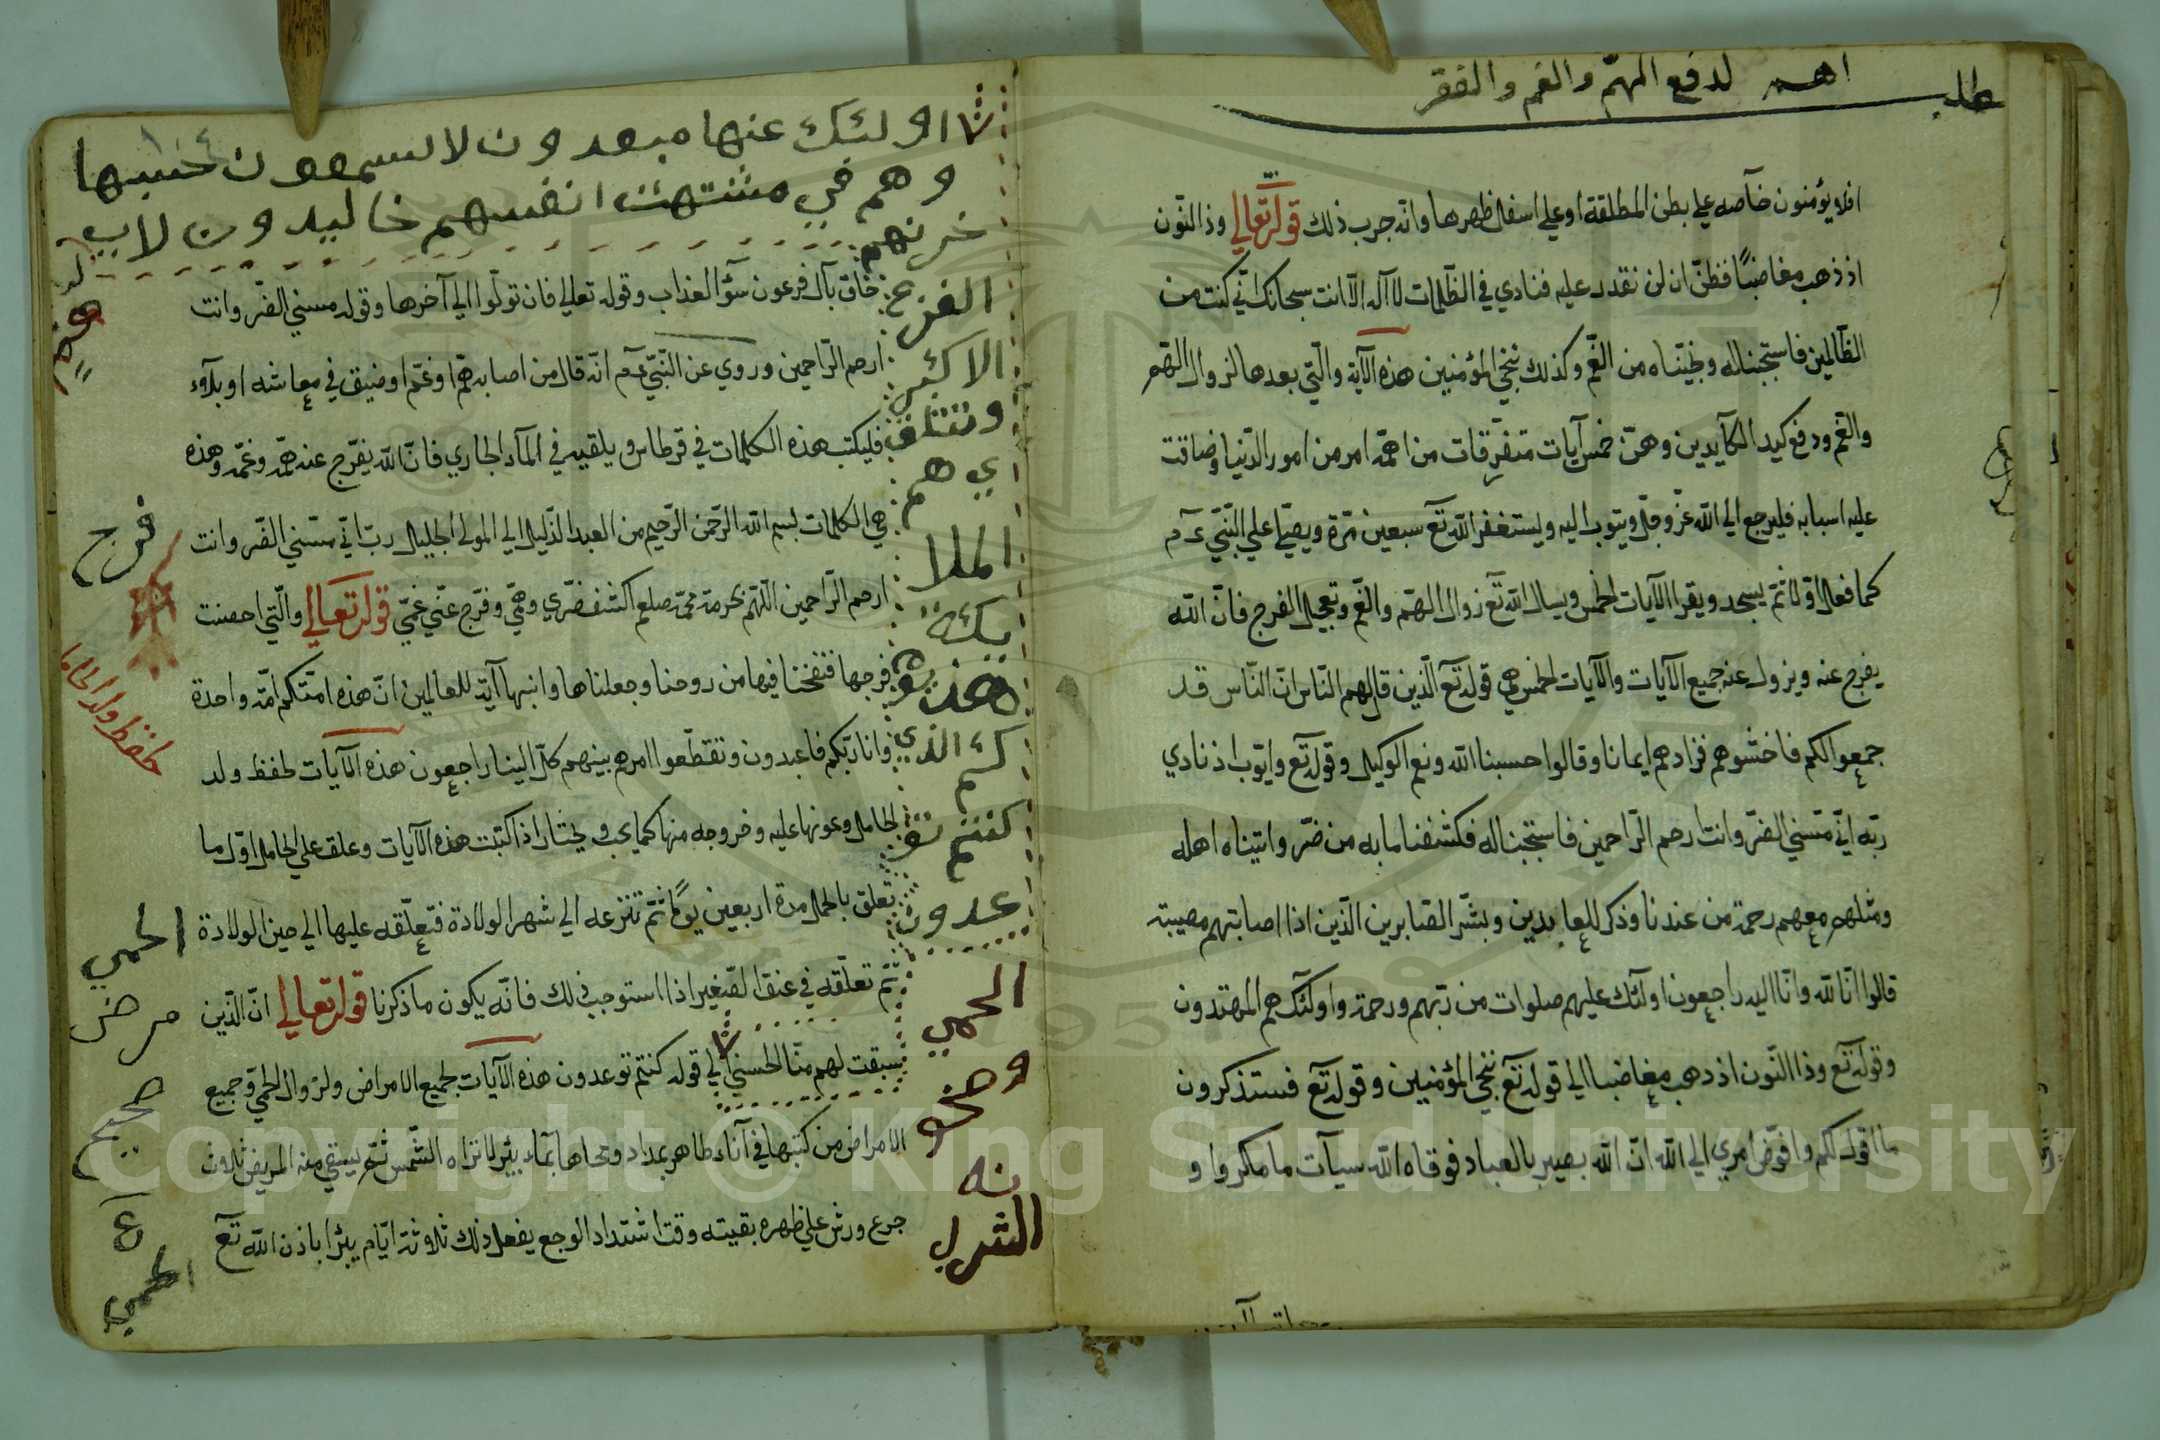 مطلب اهم لدفع الهمّ والغم والفقر
افلا يؤمنون خآصه علي بطن المطلقة اوعلي اسفل ظهرها وانه جرب ذلك قوله تعالي وذا النّون
اذ ذهب مغاضبًا فظنّ ان لن نقدر عليه فنادي في الظّلمات لا آله الّا انت سبحانك انّي كنت من
الظّالمين فاستجبنا له ونجّيناه من الغّم وكذلك ننجي المؤمنين هذه الآية والّتي بعدها لزوال الهّم
والغّم ودفع كيد الكآيدين وهنّ خمس آيات متفرّقات من اهمّه امر من امور الدّنيا وضاقت
عليه اسبابه فليرجع الي الله عزّ وجلّ ويتوب اليه ويستغفر الله تع سبعين مّرة ويصلّي علي النّبيّ ع م
كما فعل اوّلا ثمّ يسجد ويقرا الآيات الخمس ويسال الله تع زوال الهّم والغّم وتعجيل الفرج فانّ الله
يفرج عنه ويزول عنه جميع الآيات والآيات الخمس هي قوله تع الّذين قال لهم النّاس انّ النّاس قد
جمعوا لكم فاخشوهم فزادهم ايمانا وقالوا حسبنا الله ونعم الوكيل وقوله تع وايّوب اذ نادي
ربّه انّي مّسني الضّر وانت ارحم الرّاحمين فاستجبنا له فكشفنا ما به من ضّر واتيناه اهله
ومثلهم معهم رحمة من عندنا وذكر للعابدين وبشّر الصّابرين الّذين اذا اصابتهم مصيبة
قالوا انّا لله وانّا اليه راجعون اولئك عليهم صلوات من ربّهم ورحمة واولئك هم المهتدون
وقوله تع وذا النّون اذ ذهب مغاضبا الي قوله تع ننجي المؤمنين وقوله تع فستذكرون
ما اقول لكم وافوّض امري الي الله انّ الله بصير بالعباد فوقاه الله سيآت ما مكروا و
اولئك عنها مبعدون لا يسمعون حسيسها
وهم في مشتهت انفسهم خاليدون لا
خزنهم
الفزع
الاكبر
وتتلق
ي هم
الملا
يكة
هذ يو
كم الذي
كنتم تو
عدون
حاق بآل فرعون سّؤ العذاب وقوله تعالي فان تولّوا الي آخرها وقوله مسني الضّر وانت
ارحم الرّاحمين وروي عن النّبيّ ع م انّه قال من اصابه همّ او غمّ او ضيق في معاشه او بلآء
فليكتب هذه الكلمات في قرطاس ويلقيه في المآء الجاري فانّ الله يفرّج عنه همّه وغمّه وهذه
هي الكلمات بسم الله الرّحمن الرّحيم من العبد الذّليل الي المولي الجليل ربّ انّي مّسني الضّر وانت
ارحم الرّاحمين اللّهّم بحرمة محمّد صلعم اكشف ضّري وهّمي وفرّج عنّي غمّي قوله تعالي والّتي احصنت
فرجها فنفخنا فيها من روحنا وجعلناها وابنها آية للعالمين انّ هذه امّتكم امّة واحدة
وانا ربّكم فاعبدون وتقطّعوا امرهم بينهم كلّ الينا راجعون هذه الآيات لحفظ ولد
الحامل وعونها عليه وخروجه منها كما يجب ويختار اذا كتبت هذه الآيات وعلق علي الحامل اوّل ما
تعلق بالحمل مدة اربعين يومًا ثمّ تنزعه الي شهر الولادة فتعلّقه عليها الي حين الولادة
ثمّ تعلّقه في عنق الصّغير اذا استوجب ذلك فانّه يكون ما ذكرنا قوله تعالي انّ الّذين
سبقت لهم منّا الحسني الي قوله كنتم توعدون هذه الآيات لجميع الامراض ولزوال الحمي وجميع
الامراض من كتبها في آناء طاهر بمداد ومحاها بمآء بئر لا تراه الشّمس ثمّ يسقي منه المريض ثلاث
جرع ورش علي ظهره بقيته وقت اشتداد الوجع يفعل ذلك ثلاثة ايّام يبرا باذن الله تع
فرج
حفظ ولد الحامل
الحمي
مرض
الحمي
الحمي
Copyright © King Saud University